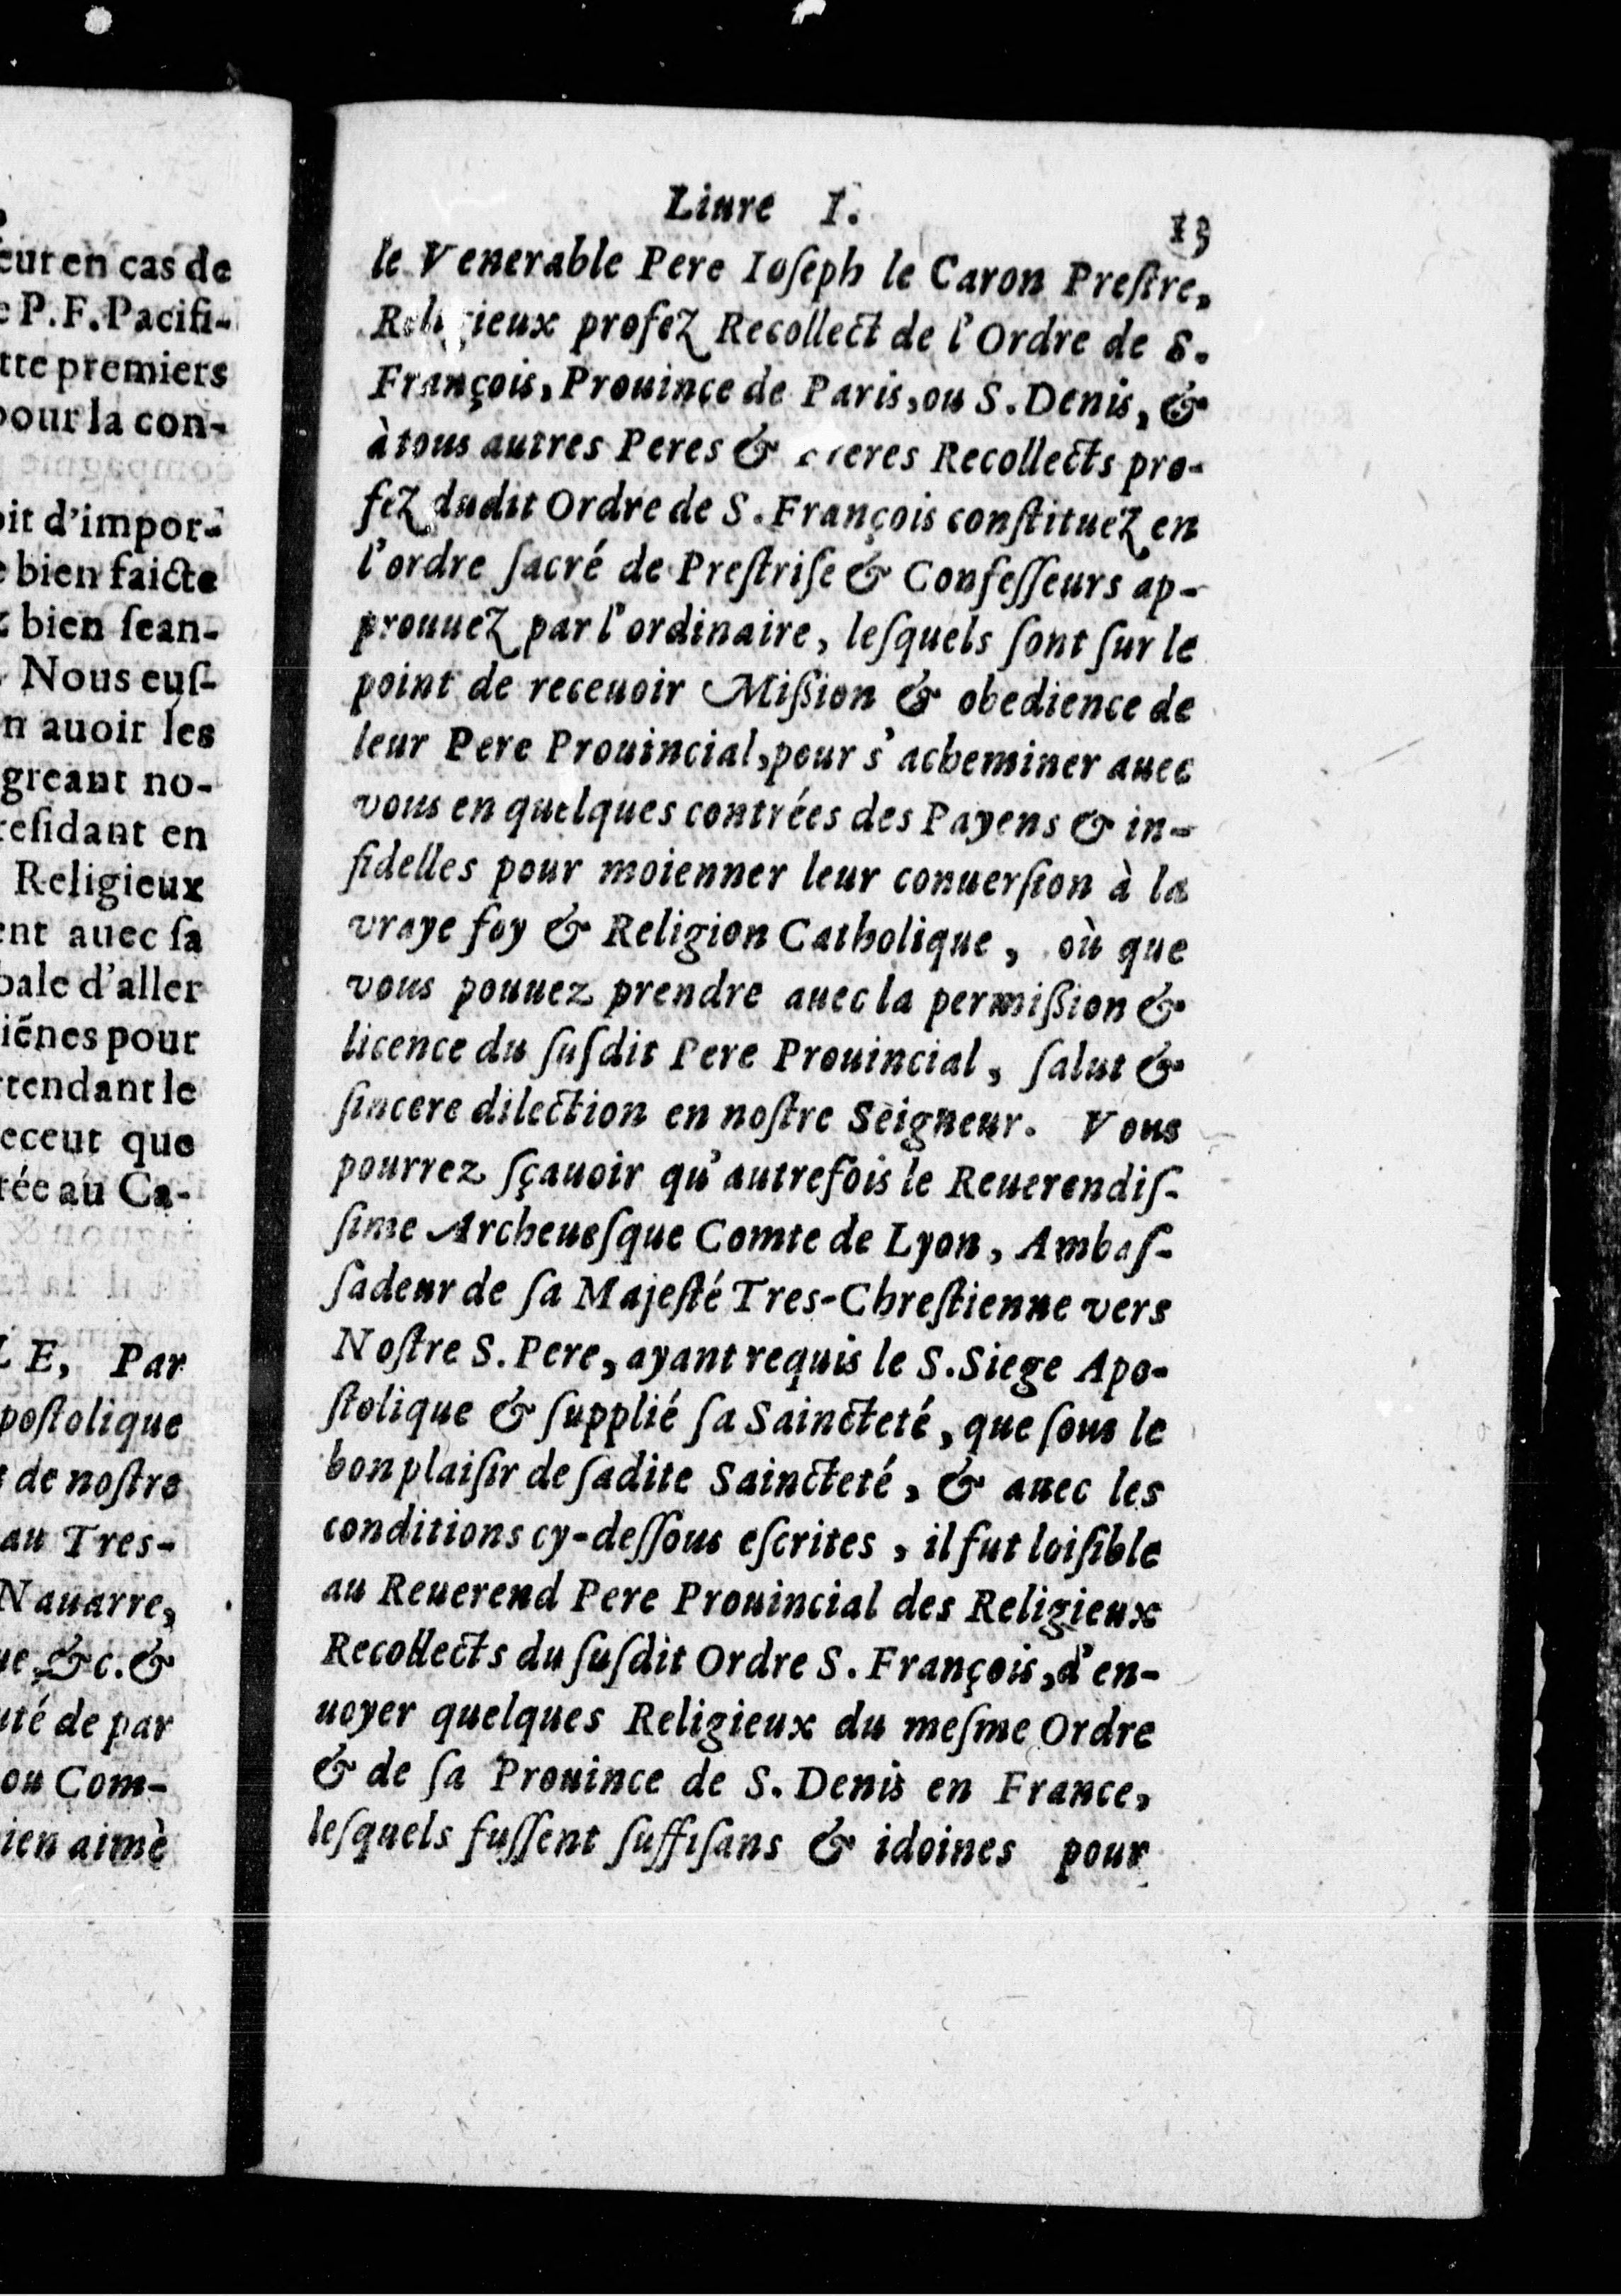 eut en cas de
P.F. Pacifi-
tte premiers
pour la con-
oit d'impor-
bien faicte
bien ſean-
Nous euſ-
n auoir les
greant no-
reſidant en
Religieux
ent auec ſa
pale d'aller
iẽnes pour
ttendant le
eceut que
rée au Ca-
LE, Par
poſtolique
de noſtre
au Tres-
Nauarre,
ue &c. &
uté de par
ou Com-
ien aimè
Liure I. 13
le Venerable Pere Ioſeph le Caron Preſtre,
Religieux profez Recollect de l'Ordre de S.
François, Prouince de Paris, ou S. Denis, &
à tous autres Peres & Freres Recollects pro-
fez dudit Ordre de S. François conſtituez en
l'ordre ſacré de Preſtriſe & Confeſſeurs ap-
prouuez par l'ordinaire, leſquels ſont ſur le
point de receuoir Miſsion & obedience de
leur Pere Prouincial, pour s'acheminer auec
vous en quelques contrées des Payens & in-
fidelles pour moienner leur conuerſion à la
vraye foy & Religion Catholique, où que
vous pouuez prendre auec la permiſsion &
licence du ſuſdit Pere Prouincial, ſalut &
ſincere dilection en noſtre Seigneur. Vous
pourrez ſçauoir qu'autrefois le Reuerendiſ-
ſime Archeueſque Comte de Lyon, Ambaſ-
ſadeur de ſa Majeſté Tres-Chreſtienne vers
Noſtre S. Pere, ayant requis le S. Siege Apo-
ſtolique & ſupplié ſa Saincteté, que ſous le
bon plaiſir de ſadite Saincteté, & auec les
conditions cy-deſſous eſcrites, il fut loiſible
au Reuerend Pere Prouincial des Religieux
Recollects du ſuſdit Ordre S. François, d'en-
uoyer quelques Religieux du meſme Ordre
& de ſa Prouince de S. Denis en France,
leſquels fuſſent ſuffiſans & idoines pour